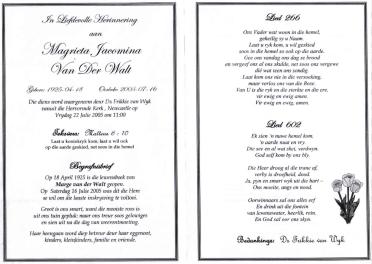 In Liefdevolle Herinnering
aan
Magrieta Jacomina
Van Der Walt
Gebore: 1925-04-18 Oorlede: 2005-07-16
Die diens word waargeneem deur Ds Frikkie van Wyk
vanuit die Hervormde Kerk, Newcastle op
Vrydag 22 Julie 2005 om 11:00
Teksvers: Matteus 6 : 10
Laat u koninkryk kom, laat u wil ook
op die aarde geskied, net soos in die hemel
Begrafnisbrief
Op 18 April 1925 is die lewensboek van
Marge van der Walt geopen.
Op Saterdag 16 Julie 2005 het dit die Heer
se wil om die laaste inskrywing te voltooi.
Groot is ons smart, want die mooiste roos is
uit ons tuin gepluk; maar ons treur soos gelowiges
en sien uit na die dag van ons hereniging.
Haar heengaan word diep betreur deur haar eggenoot,
kinders, kleinkinders, familie en vriende.
Lied 266
Ons Vader wat woon in die hemel,
geheilig sy u Naam.
Laat u ryk kom, u wil geskied
soos in die hemel so ook op die aarde.
Gee ons vandag ons dag se brood
en vergeef ons al ons skulde, net soos ons vergewe
dié wat teen ons sondig.
Laat kom ons nie in die versoeking,
maar verlos ons van die bose.
Van U is die ryk en die sterkte en die eer.
vir ewig en ewig amen.
Vir ewig en ewig amen.
Lied 602
Ek sien 'n nuwe hemel kom,
'n aarde nuut en vry
Die see en al wat skei, verdwyn.
God self kom by ons bly.
Die Heer droog al die trane af.
verby is droefheid, dood.
Ja, pyn en smart wyk uit die hart -
Ons moeite, angs en nood.
Oorwinnaars sal ons alles erf
En drink uit die fontein
van lewenswater, heerlik, rein,
En God sal oor ons skyn.
Bedankings: Ds Frikkie van Wyk